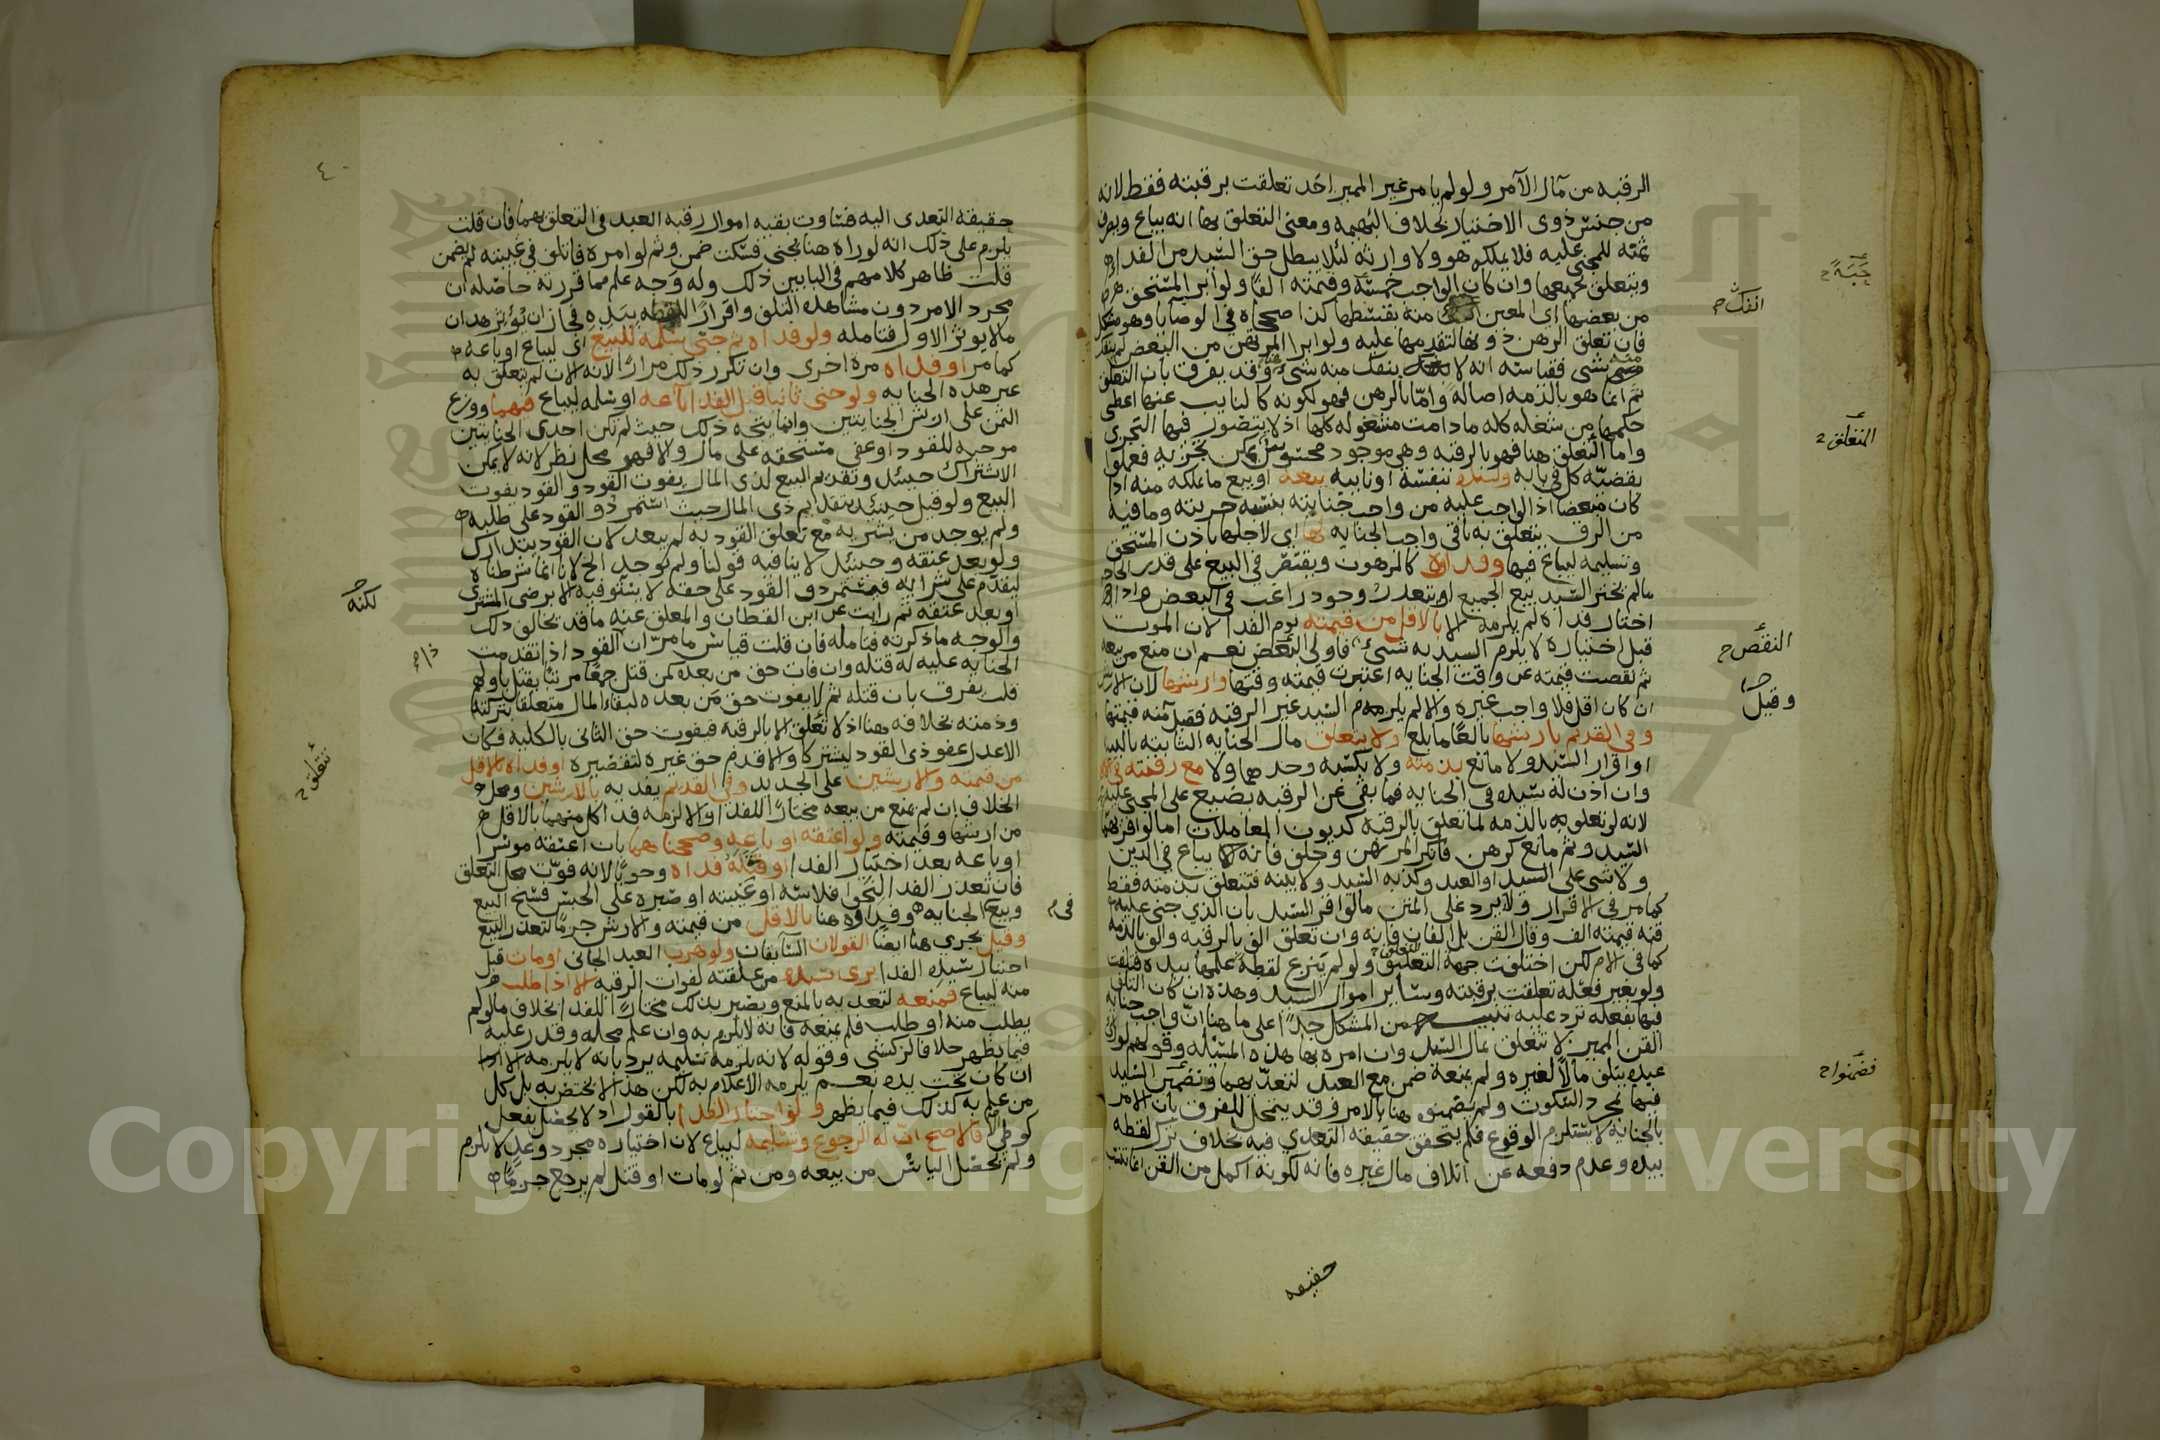 الرقبه من مال الآمر ولو لم يامر غير المميز احد تعلقت برقبته فقط لانه
من جنس ذوى الاختيار بخلاف البهيمه ومعنى التعلق بها انه يباع ويصرف
ثمنه للمجنى عليه فلا يملكه هو ولا وارثه لئلا يبطل حق السيد من الفدا
ويتعلق بجميعها وان كان الواجب حبة وقيمته الفا ولو ابرا المستحق
من بعضها انفك منه بقسطها كذا صححاه في الوصايا وهو مشكل
فان تعلق الرهن دونها لتقدمها عليه ولو ابرا المرتهن من البعض لم ينفك
شى فقياسه انه لا ينفك منه شى وقد يفرق بان التعلق
ثم انما هو بالذمه اصالة واما بالرهن فهو لكونه كالنايب عنها اعطى
حكمها من شغله كله ما دامت مشغوله كلها اذ لا يتصور فيها التجزى
واما التعلق هنا فهو بالرقبه وهى موجود محسوس يمكن تجزيه فعملوا
بقضية كل في بابه ولسيده بنفسه او نايبه بيعه او بيع ما يملكه منه اذا
كان مبعضا اذ الواجب عليه من واجب جنايته بنسبة حريته وما فيه
من الرق يتعلق به باقى واجب الجنايه لها اى لاجلها باذن المستحق
وتسليمه ليباع فيها وفداوه كالمرهون ويقتصر في البيع على قدر الحاجه
ما لم يختر السيد بيع الجميع او يتعذر وجود راغب في البعض واذا
اختار فداه لم يلزمه الا بالاقل من قيمته يوم الفدا لان الموت
قبل اختياره لا يلزم السيد به شى فاولى النقص نعم ان منع من بيعه
ثم نقصت قيمته عن وقت الجنايه اعتبرت قيمته وقتها وارشها لان الارش
ان كان اقل فلا واجب غيره والا لم يلزم السيد غير الرقبه فقبل منه قيمتها
وفى القديم بارشها بالغا ما بلغ ولا يتعلق مال الجنايه الثابته بالبينه
او اقرار السيد ولا مانع بذمته ولا بكسبه وحدهما ولا مع رقبته في
وان اذن له سيده في الجنايه فما بقى عن الرقبه يضيع على المجنى عليه
لانه لو تعلق به بالذمه لما تعلق بالرقبه كديون المعاملات اما لو اقر بها
السيد وثم مانع كرهن فانكر المرتهن وحلف فانه لا يباع في الدين
ولا شى على السيد او العبد وكذبه السيد ولا بينه فتتعلق بذمته فقط
كما مر في الاقرار ولا يرد على المتن ما لو اقر السيد بان الذي جنى عليه
قنه قيمته الف وقال القن بل الفان فانه وان تعلق الف بالرقبه والف بالذمه
كما في الام لكن اختلفت جهة التعلق ولو لم ينزع لقطة علمها بيده فتلفت
ولو بغير فعله تعلقت برقبته وبساير اموال السيد وهذه ان كان التلف
فيها بفعله ترد عليه تنبيه من المشكل جدا على ما هنا ان واجب جناية
القن المميز لا تتعلق بمال السيد وان امره بها هذه المسئله وقولهم لو راى
عبده يتلف مالا لغيره ولم يمنعه ضمن مع العبد لتعديهما
فيها بمجرد السكوت ولم يضمنوه هنا بالامر وقد يتمحل للفرق بان الامر
بالجنايه لا يستلزم الوقوع فلم يتحقق حقيقة التعدي فيه بخلاف ترك لقطه
بيده وعدم دفعه عن اتلاف مال غيره فانه لكونه اكمل من القن
حقيقه
حَبَةً ح
انفك ح
التعلق ح
النقص ح
وقيل
فضمنوا ح
٤٠
حقيقة التعدى اليه فساوت بقيه امواله رقبه العبد في التعلق بهما فان قلت
يلزم على ذلك انه لو راه هنا يجنى فسكت ضمن وثم لو امره فاتلف في غيبته لم يضمن
قلت ظاهر كلامهم في البابين ذلك وله وجه علم مما قررته حاصله ان
مجرد الامر دون مشاهدة التلف واقرار اللقطه بيده فجاز ان يوثر هذان
ما لا يوثر الاول فتامله ولو فداه ثم جنى سلمه للبيع اى ليباع او باعه
كما مر او فداه مرة اخرى وان تكرر ذلك مرارا لانه الان لم يتعلق به
غير هذه الجنايه ولو جنى ثانيا قبل الفدا باعه او سلمه ليباع فيهما ووزع
الثمن على ارش الجنايتين وانما يتجه ذلك حيث لم تكن احدى الجنايتين
موجبه للقود او عفى مستحقه على مال والا فهو محل نظر لانه لا يمكن
الاشتراك حينئذ وتقديم البيع لذى المال يفوت القود والقود يفوت
البيع ولو قيل حينئذ بتقديم ذى المال حيث استمر ذو القود على طلبه
ولم يوجد من يشتريه مع تعلق القود به لم يبعد لان القود يتدارك
ولو بعد عتقه وحينئذ لا ينافيه قولنا ولم يوجد الخ لانا انما شرطناه
ليقدم على شرايه فيستمر ذو القود على حقه لا يستوفيه الا برضى المشترى
او بعد عتقه ثم رايت عن ابن القطان والمعلق عنه ما قد يخالف ذلك
والوجه ما ذكرته فتامله فان قلت قياس ما مر ان القود اذا تقدمت
الجنايه عليه له قتله وان فات حق من بعده كمن قتل جمعا مرتبا يقتل باولهم
قلت يفرق بان قتله ثم لا يفوت حق من بعده لبقاء المال متعلقا بتركته
وذمته بخلافه هنا اذ لا تعلق الا بالرقبه فيفوت حق الثانى بالكليه فكان
الاعدل عفو ذى القود ليشتركا والا قدم حق غيره لتقصيره او فداه بالاقل
من قيمته والارشين على الجديد وفى القديم يفديه بالارشين ومحل
الخلاف ان لم يمنع من بيعه مختارا للفدا والا لزمه فدا كل منهما بالاقل
من ارشها وقيمته ولو اعتقه او باعه وصححناهما بان اعتقه موسرا
او باعه بعد اختيار الفدا او قتله فداه وجوبا لانه فوت محل التعلق
فان تعذر الفدا لنحو افلاسه او غيبته او صبره على الحبس فسخ البيع
وبيع في الجنايه وفداوه هنا بالاقل من قيمته والارش جزما لتعذر البيع
وقيل يجرى هنا ايضا القولان السابقان ولو هرب العبد الجانى او مات قبل
اختيار سيده الفدا برى سيده من علقته لفوات الرقبه الا اذا طلب
منه ليباع فمنعه لتعديه بالمنع ويصير بذلك مختارا للفدا بخلاف ما لو لم
يطلب منه او طلب فلم يمنعه فانه لا يلزم به وان علم محله وقدر عليه
فيما يظهر خلافا للزركشى وقوله لانه يلزمه تسليمه يرد بانه لا يلزمه الا اذا
ان كان تحت يده نعم يلزمه الاعلام به لكن هذا لا يختص به بل كل
من علم به كذلك فيما يظهر ولو اختار الفدا بالقول اذ لا يحصل بفعل
كوطى فالاصح ان له الرجوع وتسليمه ليباع لان اختياره مجرد وعد لا يلزم
ولم يحصل الياس من بيعه ومن ثم لو مات او قتل لم يرجع جزما
لكنه
تتعلق ح
في م
Copyright © King Saud University